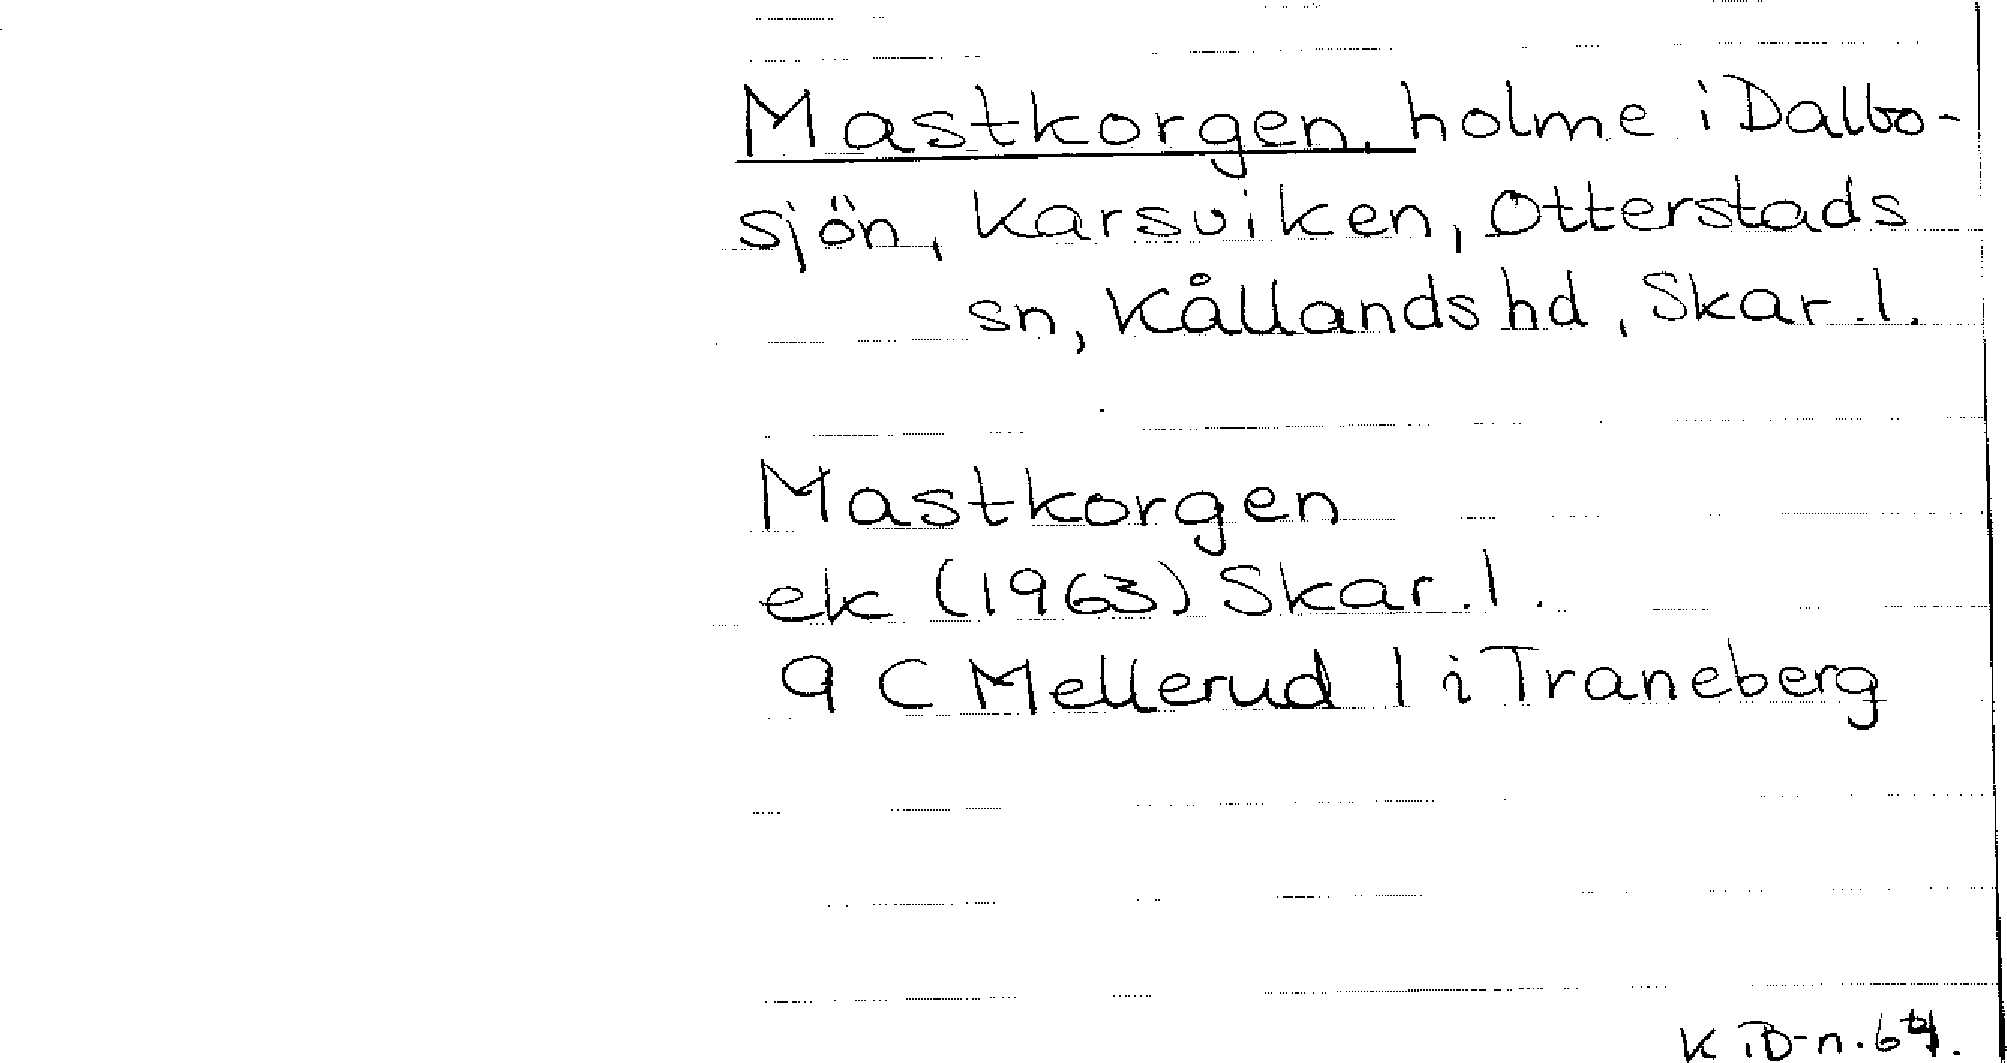 Mastkorgen, holme i Dalbo-
sjön, Karsviken, Otterstads
sn, Kållands hd, Skar. l.
Mastkorgen
ek (1963) Skar. l.
9 C Mellerud 1 i Traneberg